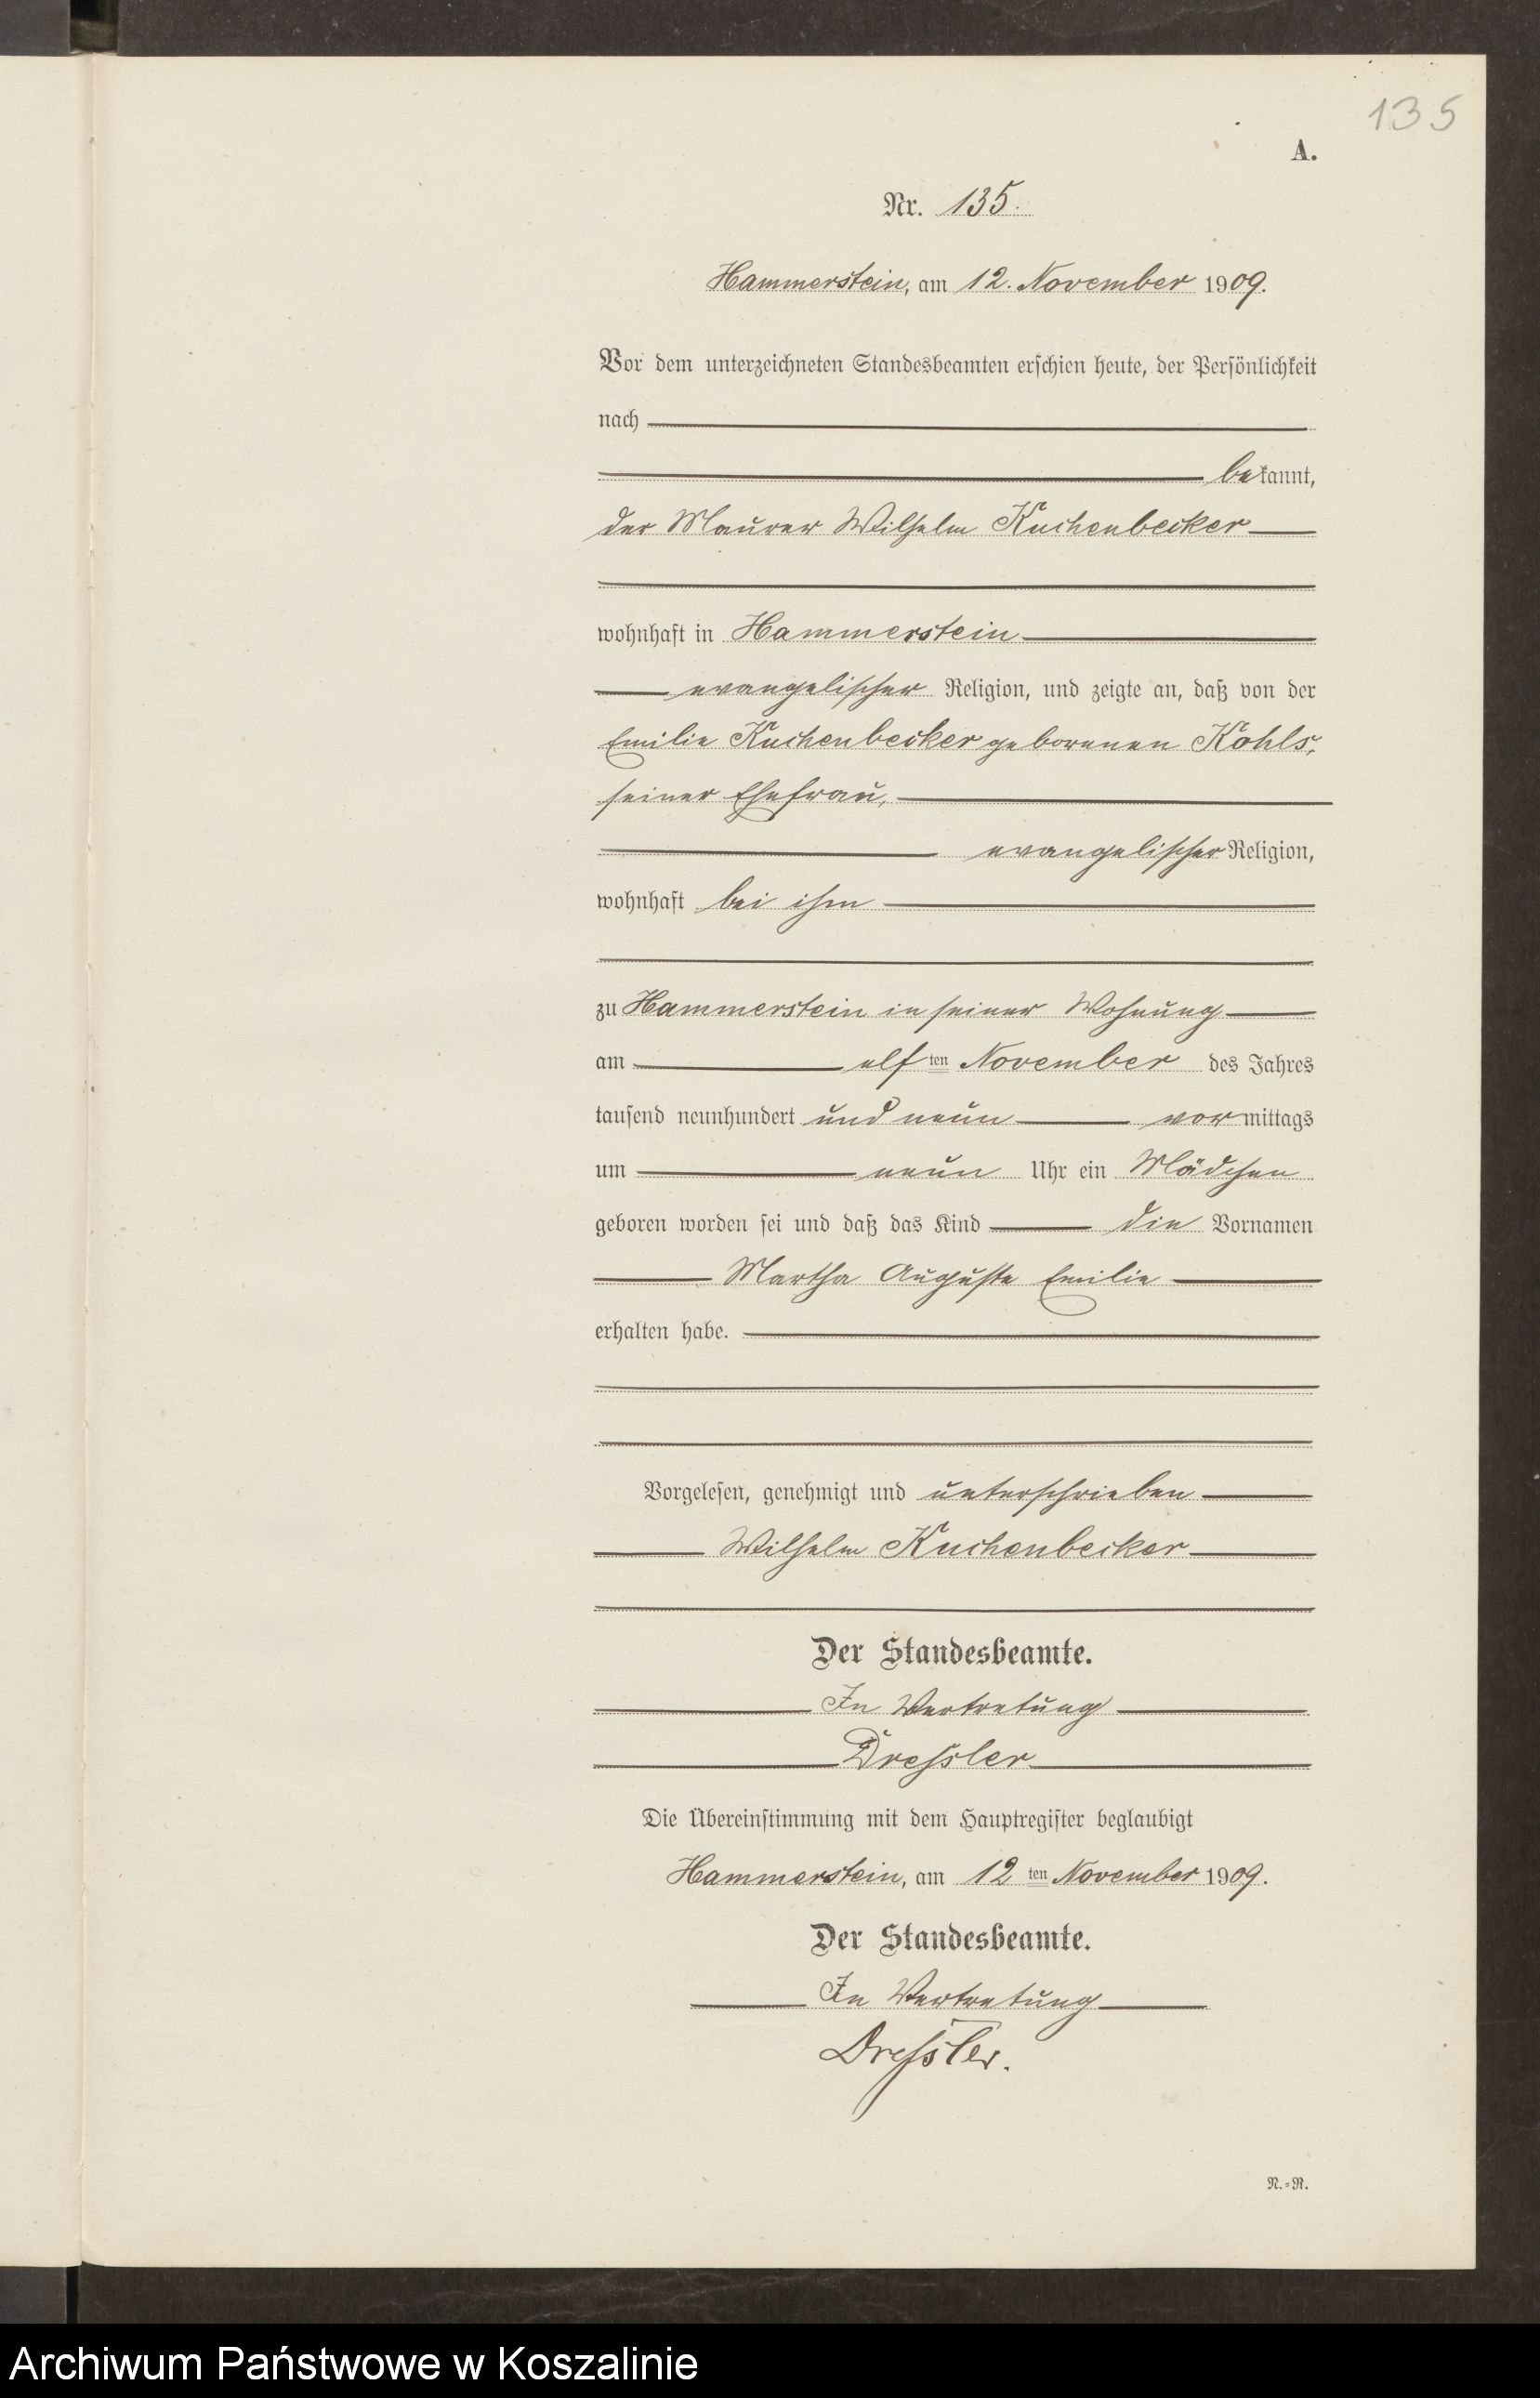 135
A.
Nr. 135.
Hammerstein, am 12. November 1909.
Vor dem unterzeichneten Standesbeamten erschien heute, der Persönlichkeit
nach
bekannt,
der Maurer Wilhelm Kuchenbecker
wohnhaft in Hammerstein
evangelischer Religion, und zeigte an, daß von der
Emilie Kuchenbecker geborenen Kohls,
seiner Ehefrau,
evangelischer Religion,
wohnhaft bei ihm
zu Hammerstein in seiner Wohnung
am elf ten November des Jahres
tausend neunhundert und neun vormittags
um neun Uhr ein Mädchen
geboren worden sei und daß das Kind die Vornamen
Martha Auguste Emilie
erhalten habe.
Vorgelesen, genehmigt und unterschrieben
Wilhelm Kuchenbecker
Der Standesbeamte.
In Vertretung
Dressler
Die Übereinstimmung mit dem Hauptregister beglaubigt
Hammerstein, am 12 ten November 1909.
Der Standesbeamte.
In Vertretung
Dressler.
N.=R.
Archiwum Państwowe w Koszalinie